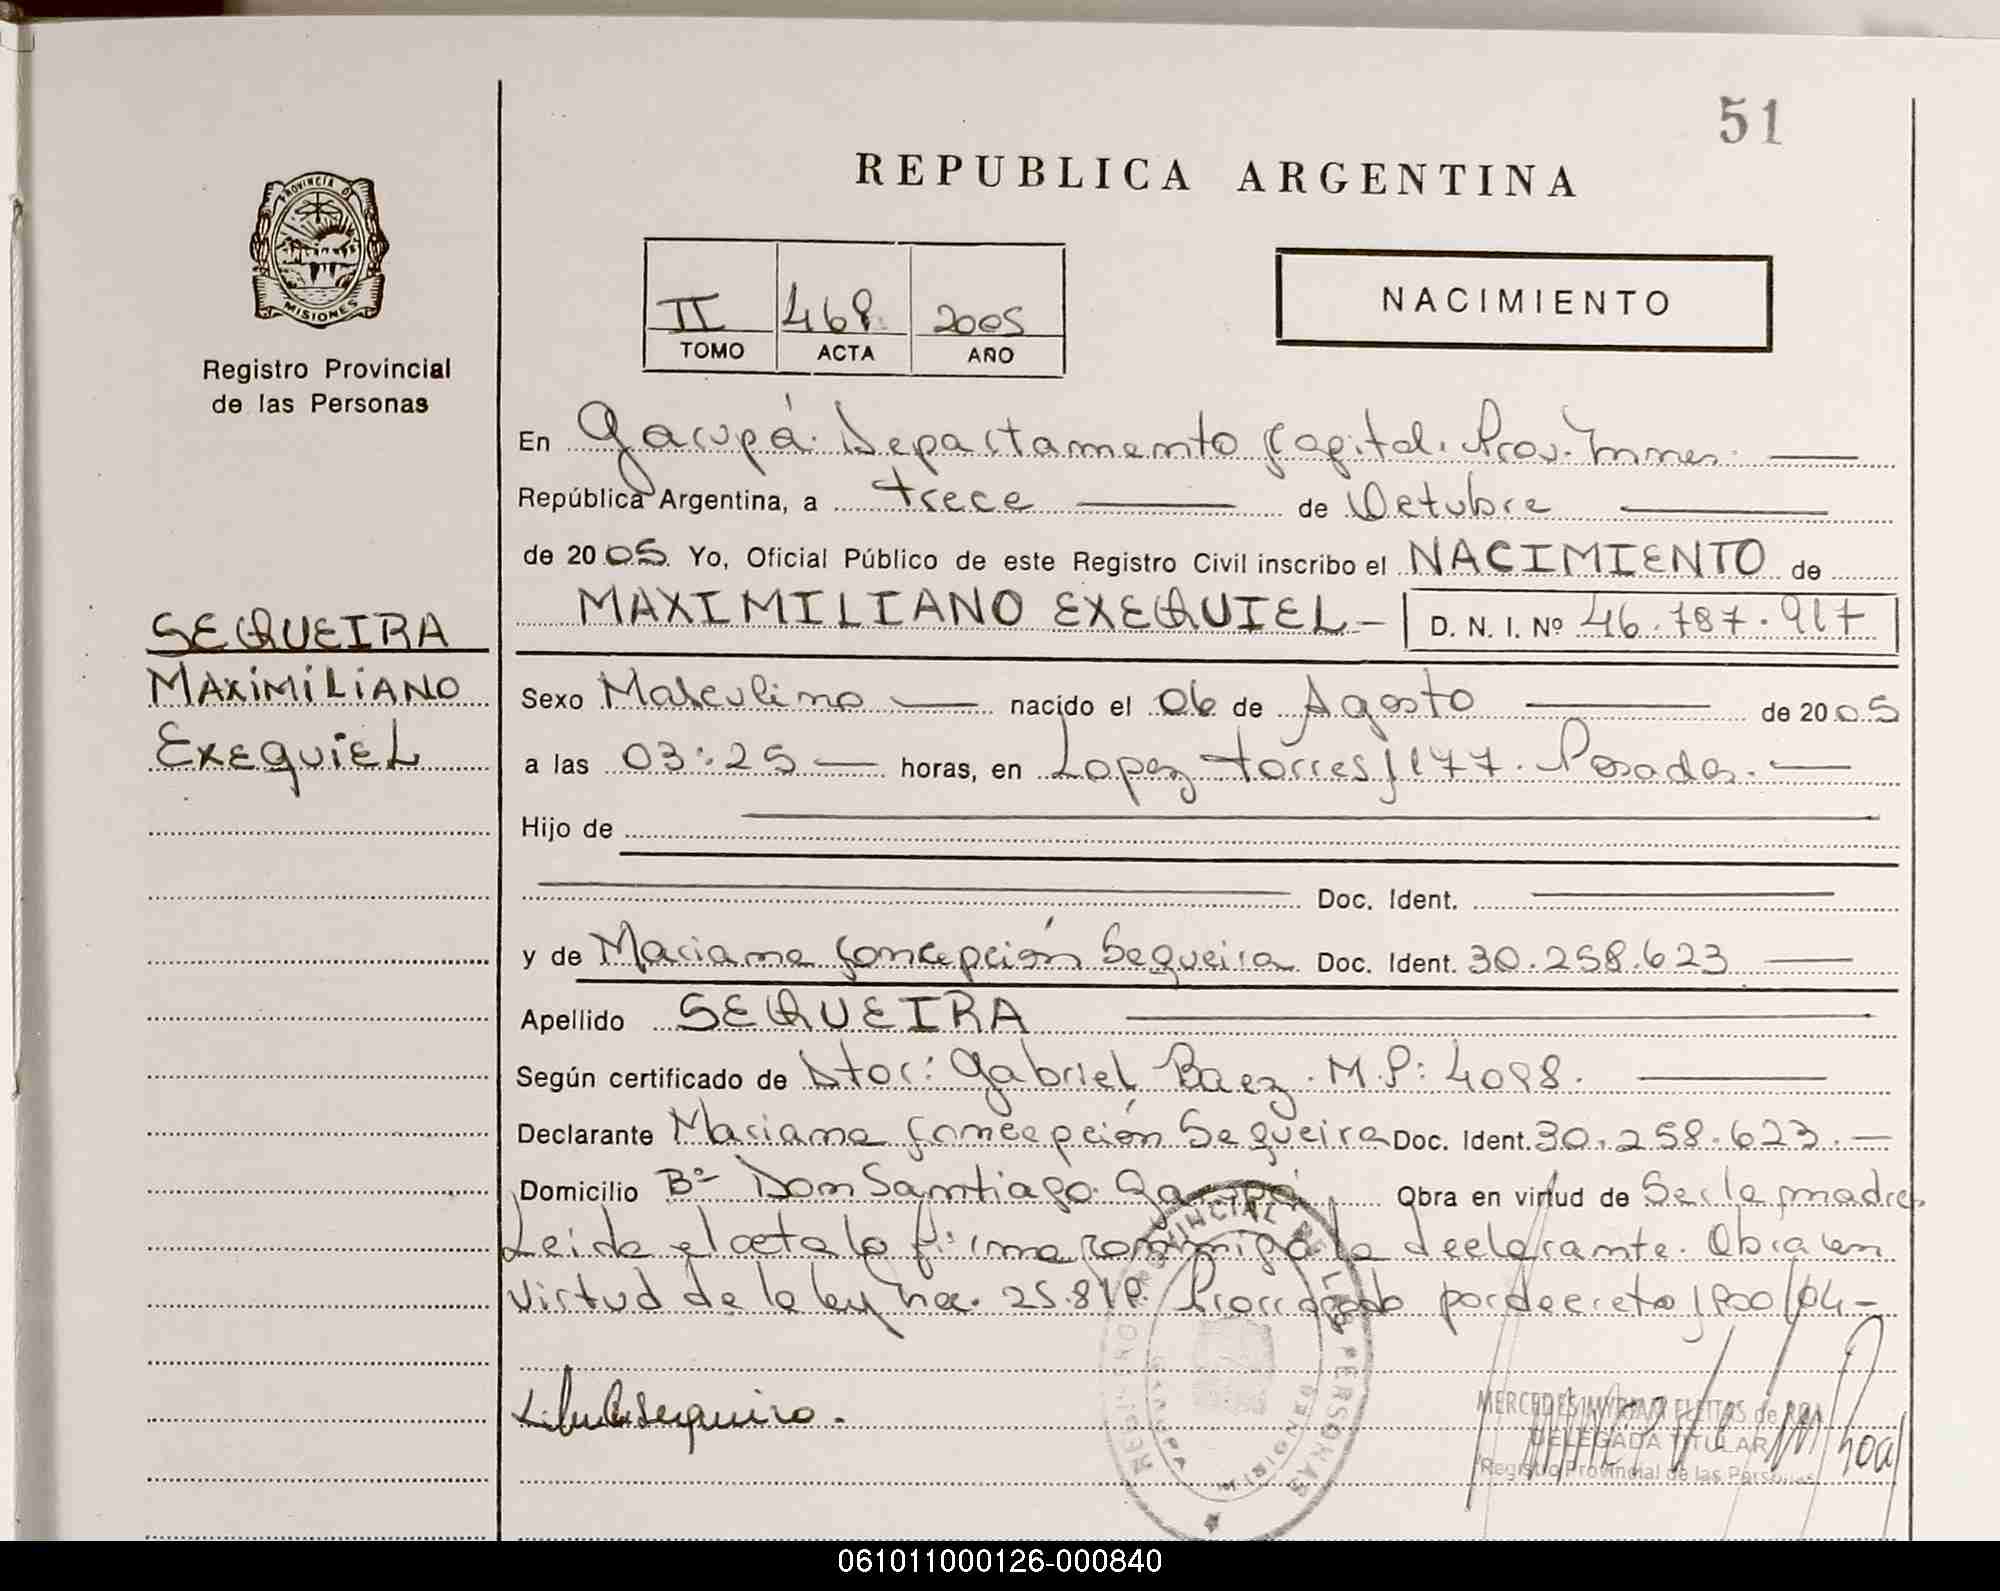 51
REPUBLICA ARGENTINA
PROVINCIA DE
MISIONES
Registro Provincial
de las Personas
II 468 2005
TOMO ACTA AÑO
NACIMIENTO
En Garupá. Departamento Capital. Prov. Mnes.
República Argentina, a trece de Octubre
de 2005 Yo, Oficial Público de este Registro Civil inscribo el NACIMIENTO de
MAXIMILIANO EXEQUIEL - D. N. I. Nº 46.787.917
SEQUEIRA
MAXIMILIANO
EXEQUIEL
Sexo Masculino nacido el 06 de Agosto de 2005
a las 03:25 horas, en Lopez torres 1177. Posadas.
Hijo de
Doc. Ident.
y de Mariana Concepción Sequeira Doc. Ident. 30.258.623
Apellido SEQUEIRA
Según certificado de Dtor: Gabriel Baez. M.P: 4098.
Declarante Mariana Concepción Sequeira Doc. Ident. 30.258.623.
Domicilio Bº Don Santiago. Garupá Obra en virtud de Ser la madre
Leida el acta la firma conmigo la declarante. Obra en
virtud de la ley nro. 25.819. Prorrogado por decreto 1900/04-
REGISTRO PROVINCIAL DE LAS PERSONAS
GARUPA MISIONES
MERCEDES MYRIAM FLEITAS de ROA
DELEGADA TITULAR
Registro Provincial de las Personas
061011000126-000840